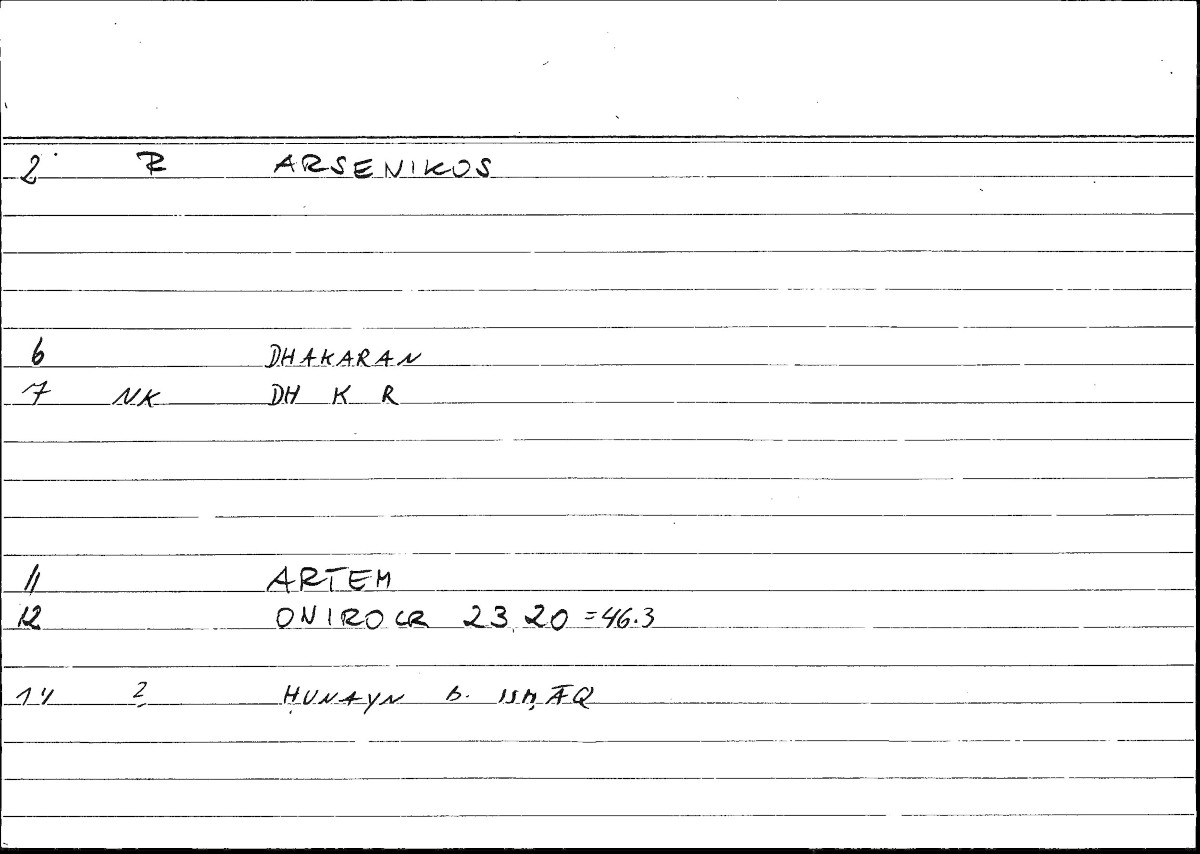 2 R ARSENIKOS
6 DHAKARAN
7 NK DH K R
11 ARTEM
12 ONIROCR 23,20 =46.3
14 2 ḤUNAYN b. ISḤĀQ